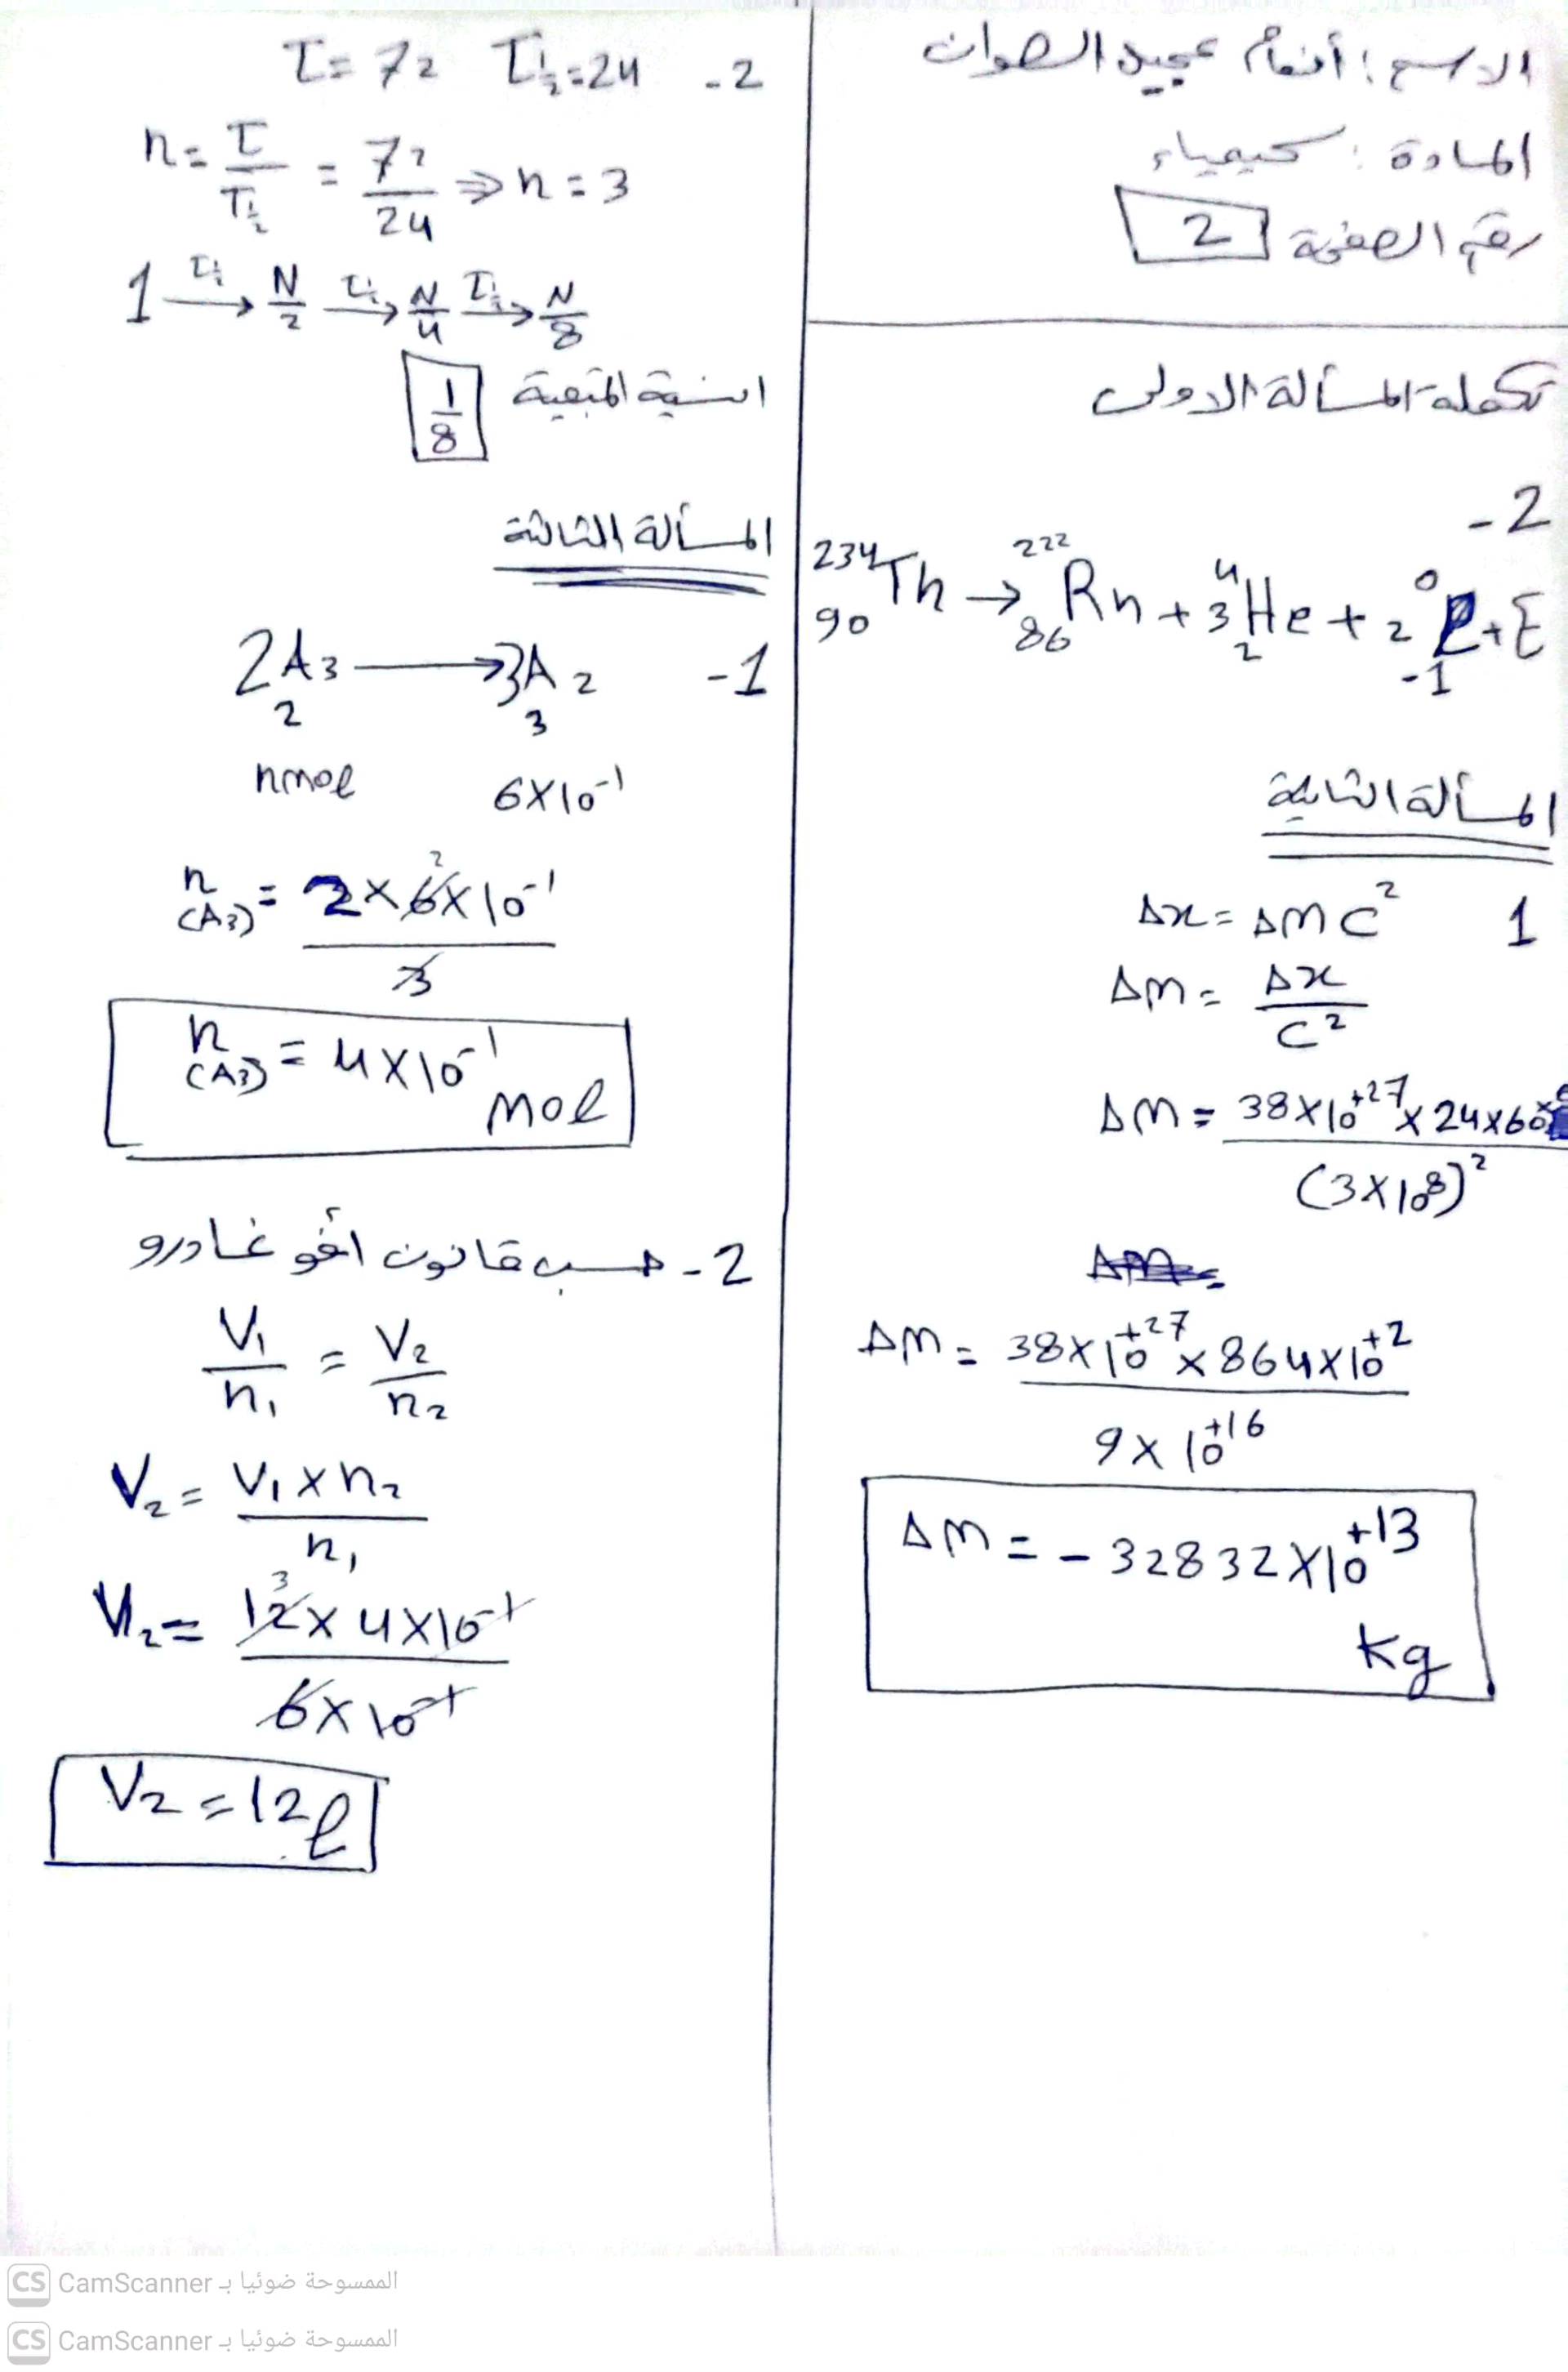 الاسم : أنغام عجيد الصوان
المادة : كيمياء
رقم الصفحة 2
تكملة المسألة الاولى
2 -
²³⁴₉₀Th → ²²²₈₆Rn + 3 ⁴₂He + 2 ⁰₋₁e + E
المسألة الثانية
1 Δx = Δm c²
Δm = Δx / c²
Δm = 38×10⁺²⁷ × 24×60× / (3×10⁸)²
Δm = 38×10⁺²⁷ × 864×10⁺² / 9×10⁺¹⁶
Δm = - 32832×10⁺¹³
kg
2 - T = 72 T½ = 24
n = T / T½ = 72 / 24 ⇒ n = 3
1 →(T½) N/2 →(T½) N/4 →(T½) N/8
النسبة المتبقية 1/8
المسألة الثالثة
1 - 2A₃ → 3A₂
2 3
nmol 6×10⁻¹
n(A₃) = 2×6×10⁻¹ / 3
n(A₃) = 4×10⁻¹ mol
2 - حسب قانون أفوغادرو
V₁ / n₁ = V₂ / n₂
V₂ = V₁ × n₂ / n₁
V₂ = 12 × 4×10⁻¹ / 6×10⁻¹
V₂ = 12 l
CS الممسوحة ضوئيا بـ CamScanner
CS الممسوحة ضوئيا بـ CamScanner